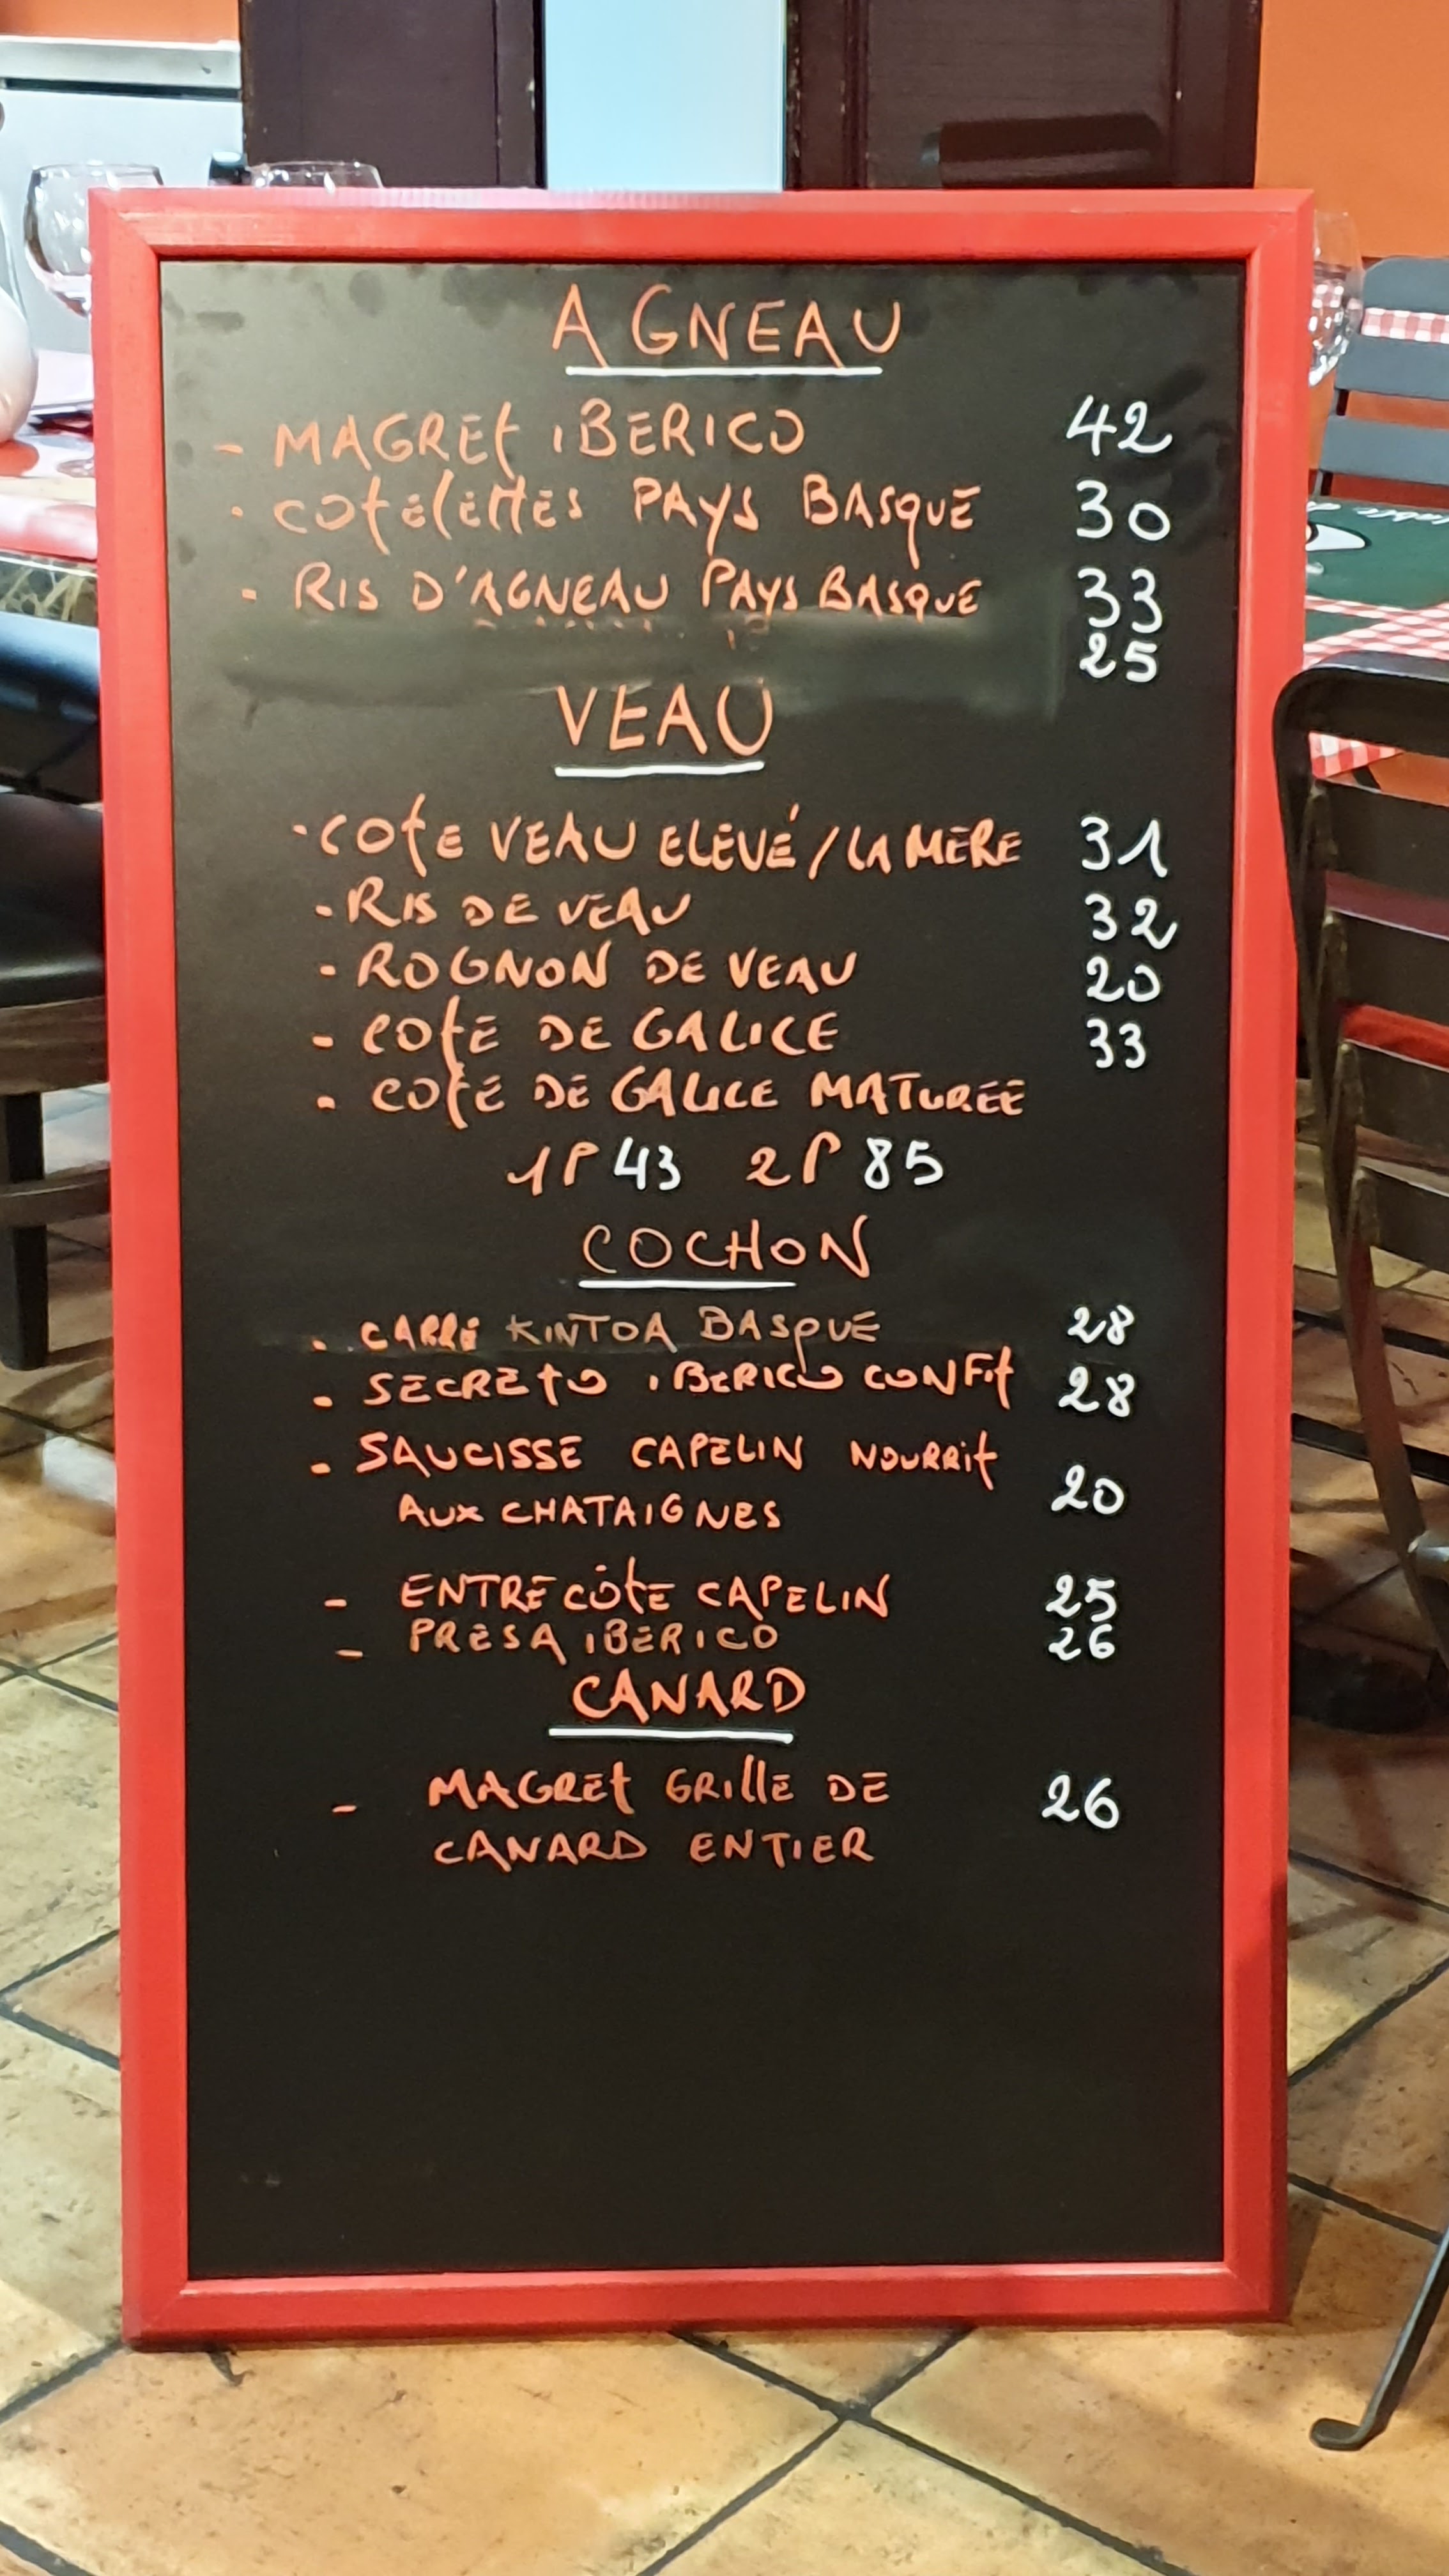 AGNEAU
- MAGRET IBERICO 42
- COTELETTES PAYS BASQUE 30
- RIS D'AGNEAU PAYS BASQUE 33
25
VEAU
- COTE VEAU ELEVÉ / LA MERE 31
- RIS DE VEAU 32
- ROGNON DE VEAU 20
- COTE DE GALICE 33
- COTE DE GALICE MATUREE
1P 43 2P 85
COCHON
- CARRÉ KINTOA BASQUE 28
- SECRETO IBERICO CONFIT 28
- SAUCISSE CAPELIN NOURRIT
AUX CHATAIGNES 20
- ENTRECÔTE CAPELIN 25
- PRESA IBERICO 26
CANARD
- MAGRET GRILLE DE 26
CANARD ENTIER